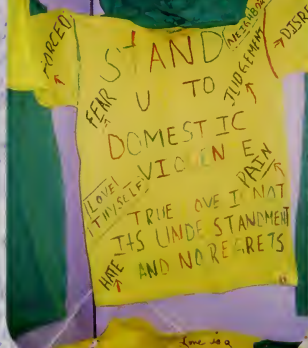 FORCED
STAND
U TO
DOMESTIC
VIOLEN E
FEAR
JUDGEMENT
PAIN
I LOVE
MYSELF
TRUE OVE I NOT
ITS UNDE STANDMENT
AND NO REGRETS
HATE
love is a